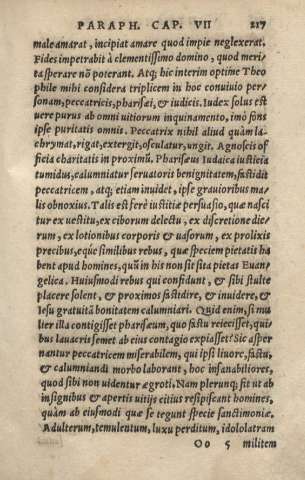 PARAPH. CAP. VII 217
male amarat, incipiat amare quod impie neglexerat.
Fides impetrabit à clementissimo domino, quod meri⸗
ta sperare nō poterant. Atq; hic interim optime Theo
phile mihi considera triplicem in hoc conuiuio per⸗
sonam, peccatricis, pharisæi, & iudicis. Iudex solus est
uere purus ab omni uitiorum inquinamento, imò fons
ipse puritatis omnis. Peccatrix nihil aliud quàm la⸗
chrymat, rigat, extergit, osculatur, ungit. Agnoscis of
ficia charitatis in proximū. Pharisæus Iudaica iusticia
tumidus, calumniatur seruatoris benignitatem, fastidit
peccatricem, atq; etiam inuidet, ipse grauioribus ma⸗
lis obnoxius. Talis est ferè iustitiæ persuasio, quæ nasci
tur ex uestitu, ex ciborum delectu, ex discretione die⸗
rum, ex lotionibus corporis & uasorum, ex prolixis
precibus, eq́ue similibus rebus, quæ speciem pietatis ha
bent apud homines, quū in his non sit sita pietas Euan⸗
gelica. Huiusmodi rebus qui confidunt, & sibi stulte
placere solent, & proximos fastidire, & inuidere, &
Iesu gratuitā bonitatem calumniari. Quid enim, si mu
lier illa contigisset pharisæum, quo fastu reiecisset, qui⸗
bus lauacris semet ab eius contagio expiasset? Sic asper
nantur peccatricem miserabilem, qui ipsi liuore, fastu,
& calumniandi morbo laborant, hoc insanabiliores,
quod sibi non uidentur ægroti, Nam plerunq; fit ut ab
insignibus & apertis uitijs citius resipiscant homines,
quàm ab eiusmodi quæ se tegunt specie sanctimoniæ.
Adulterum, temulentum, luxu perditum, idololatram
Oo 5 militem